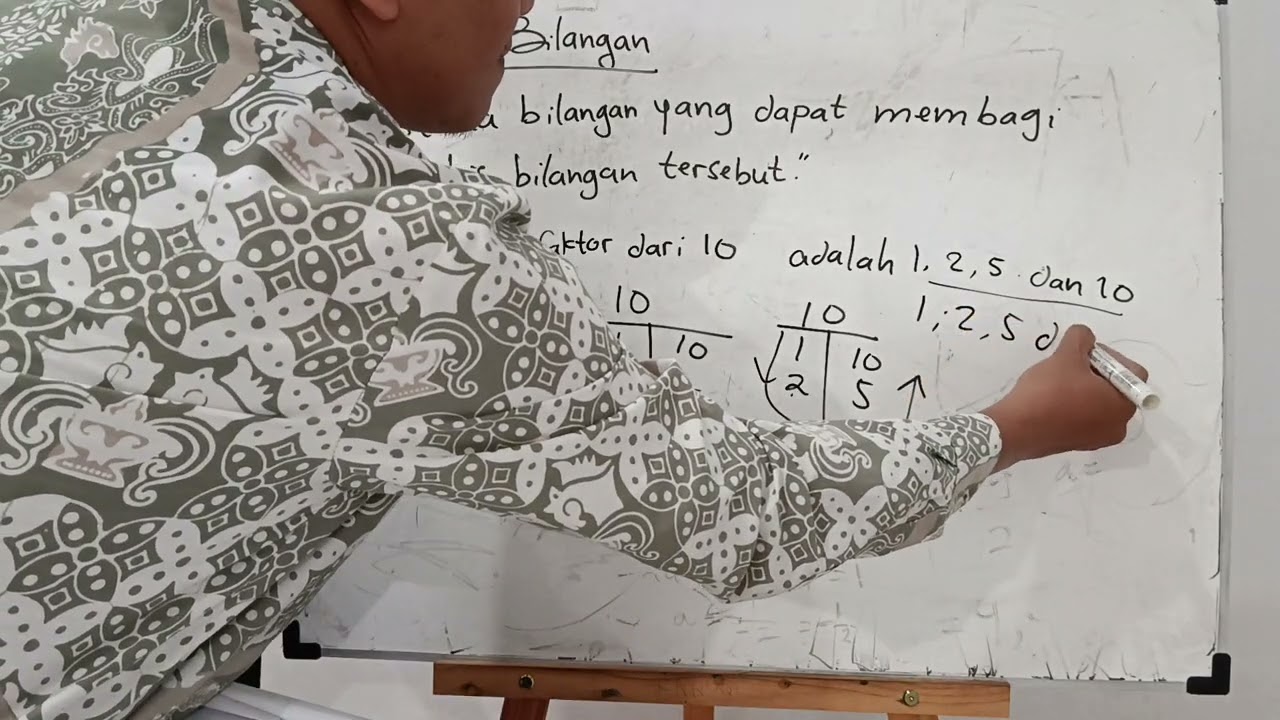 Bilangan
bilangan yang dapat membagi
bilangan tersebut."
dari 10 adalah 1, 2, 5 dan 10
1, 2, 5
10
10
10
1 10
2 5